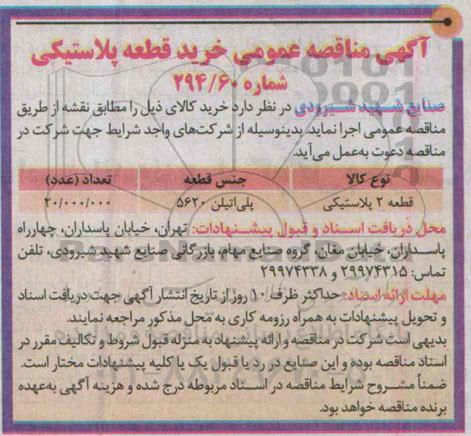 آگهی مناقصه عمومی خرید قطعه پلاستیکی
شماره ۲۹۴/۶۰
صنایع شهید شیرودی در نظر دارد خرید کالای ذیل را مطابق نقشه از طریق
مناقصه عمومی اجرا نماید. بدینوسیله از شرکت‌های واجد شرایط جهت شرکت در
مناقصه دعوت به‌عمل می‌آید.
نوع کالا جنس قطعه تعداد (عدد)
قطعه ۲ پلاستیکی پلی‌اتیلن ۵۶۲۰ ۲۰/۰۰۰/۰۰۰
محل دریافت اسناد و قبول پیشنهادات: تهران، خیابان پاسداران، چهارراه
پاسداران، خیابان مغان، گروه صنایع مهام، بازرگانی صنایع شهید شیرودی، تلفن
تماس: ۲۹۹۷۴۳۱۵ و ۲۹۹۷۴۳۳۸
مهلت ارائه اسناد: حداکثر ظرف ۱۰ روز از تاریخ انتشار آگهی جهت دریافت اسناد
و تحویل پیشنهادات به همراه رزومه کاری به محل مذکور مراجعه نمایند.
بدیهی است شرکت در مناقصه و ارائه پیشنهاد به منزله قبول شروط و تکالیف مقرر در
اسناد مناقصه بوده و این صنایع در رد یا قبول یک یا کلیه پیشنهادات مختار است.
ضمناً مشروح شرایط مناقصه در اسناد مربوطه درج شده و هزینه آگهی به‌عهده
برنده مناقصه خواهد بود.